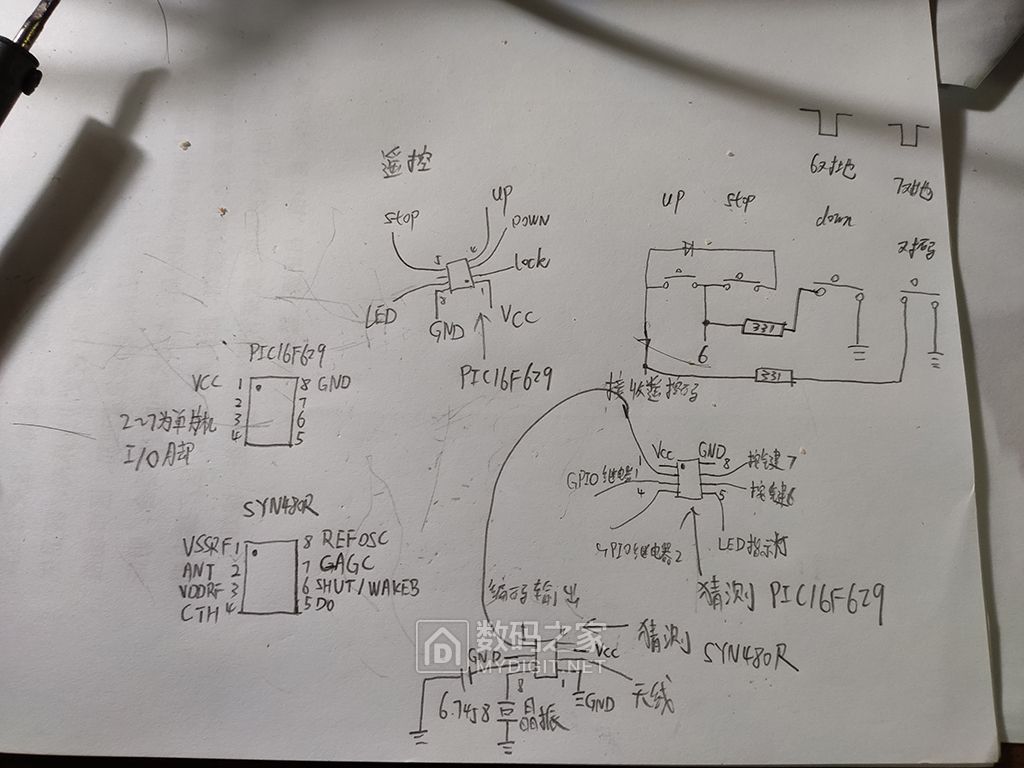 遥控
stop
UP
DOWN
5
lock
LED
3
GND
1
VCC
PIC16F629
UP
stop
6对地
down
7对地
对码
331
6
331
接收遥控码
PIC16F629
VCC 1
8 GND
2
7
3
6
4
5
2~7为单片机
I/O脚
SYN480R
VSSRF 1
8 REFOSC
ANT 2
7 CAGC
VDDRF 3
6 SHUT/WAKEB
CTH 4
5 DO
1
VCC
GND
8
按键7
GPIO继电器1
按键6
4
5
GPIO继电器2
LED指示灯
猜测 PIC16F629
编码输出
猜测
SYN480R
GND
VCC
8
1
GND
天线
6.7458
晶振
数码之家
MYDIGIT.NET